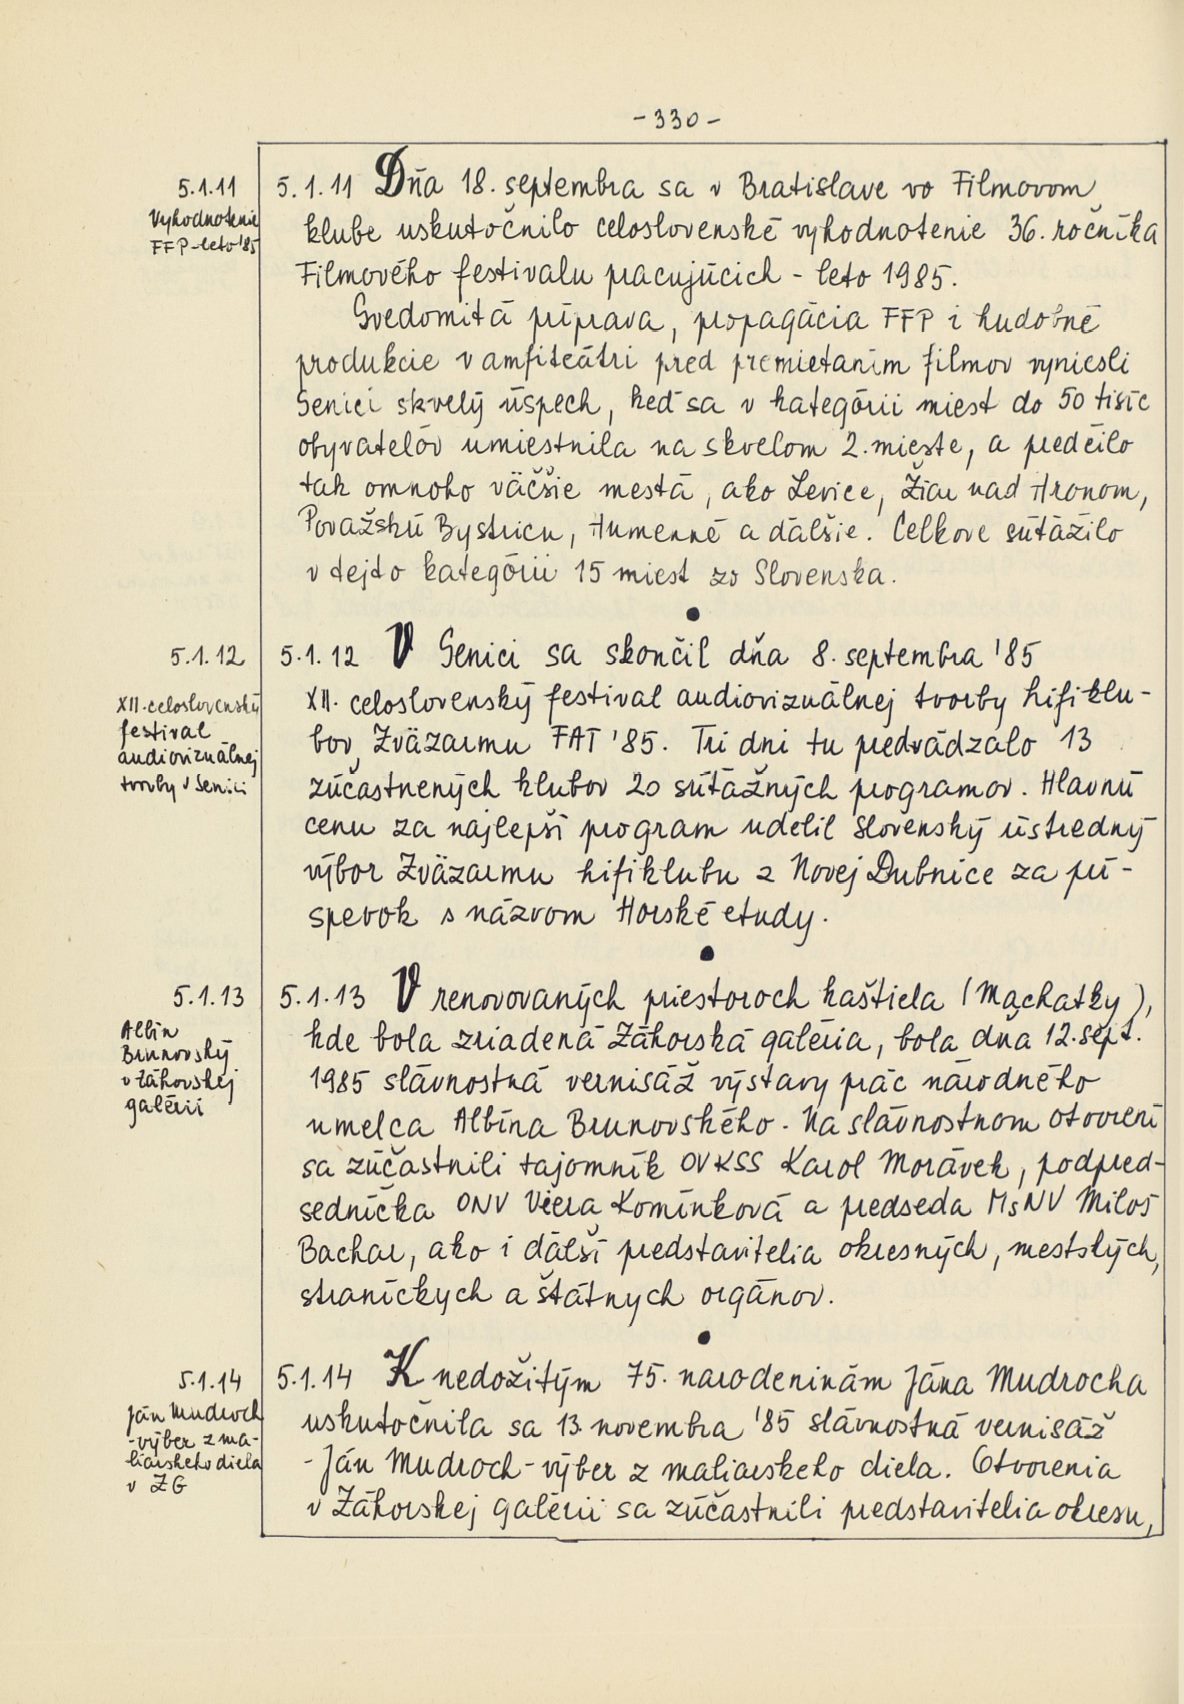 -330-
5.1.11
Vyhodnotenie
FFP-leto '85
5.1.11 Dňa 18. septembra sa v Bratislave vo Filmovom
klube uskutočnilo celoslovenské vyhodnotenie 36. ročníka
Filmového festivalu pracujúcich - leto 1985.
Svedomitá príprava, propagácia FFP i hudobné
produkcie v amfiteátri pred premietaním filmov vyniesli
Senici skvelý úspech, keď sa v kategórii miest do 50 tisíc
obyvateľov umiestnila na skvelom 2. mieste, a predčilo
tak omnoho väčšie mestá, ako Levice, Žiar nad Hronom,
Považskú Bystricu, Humenné a ďalšie. Celkove súťažilo
v tejto kategórii 15 miest zo Slovenska.
5.1.12
XII. celoslovenský
festival
audiovizuálnej
tvorby v Senici
5.1.12 V Senici sa skončil dňa 8. septembra '85
XII. celoslovenský festival audiovizuálnej tvorby hifiklu-
bov Zväzarmu FAT '85. Tri dni tu predvádzalo 13
zúčastnených klubov 20 súťažných programov. Hlavnú
cenu za najlepší program udelil Slovenský ústredný
výbor Zväzarmu hifiklubu z Novej Dubnice za prí-
spevok s názvom Horské etudy.
5.1.13
Albín
Brunovský
v Záhorskej
galérii
5.1.13 V renovovaných priestoroch kaštieľa (Machatky),
kde bola zriadená Záhorská galéria, bola dňa 12. sept.
1985 slávnostná vernisáž výstavy prác národného
umelca Albína Brunovského. Na slávnostnom otvorení
sa zúčastnili tajomník OV KSS Karol Morávek, podpred-
sedníčka ONV Viera Komínková a predseda MsNV Miloš
Bachar, ako i ďalší predstavitelia okresných, mestských,
straníckych a štátnych orgánov.
5.1.14
Ján Mudroch
-výber z ma-
liarskeho diela
v ZG
5.1.14 K nedožitým 75. narodeninám Jána Mudrocha
uskutočnila sa 13. novembra '85 slávnostná vernisáž
- Ján Mudroch - výber z maliarskeho diela. Otvorenia
v Záhorskej galérii sa zúčastnili predstavitelia okresu,